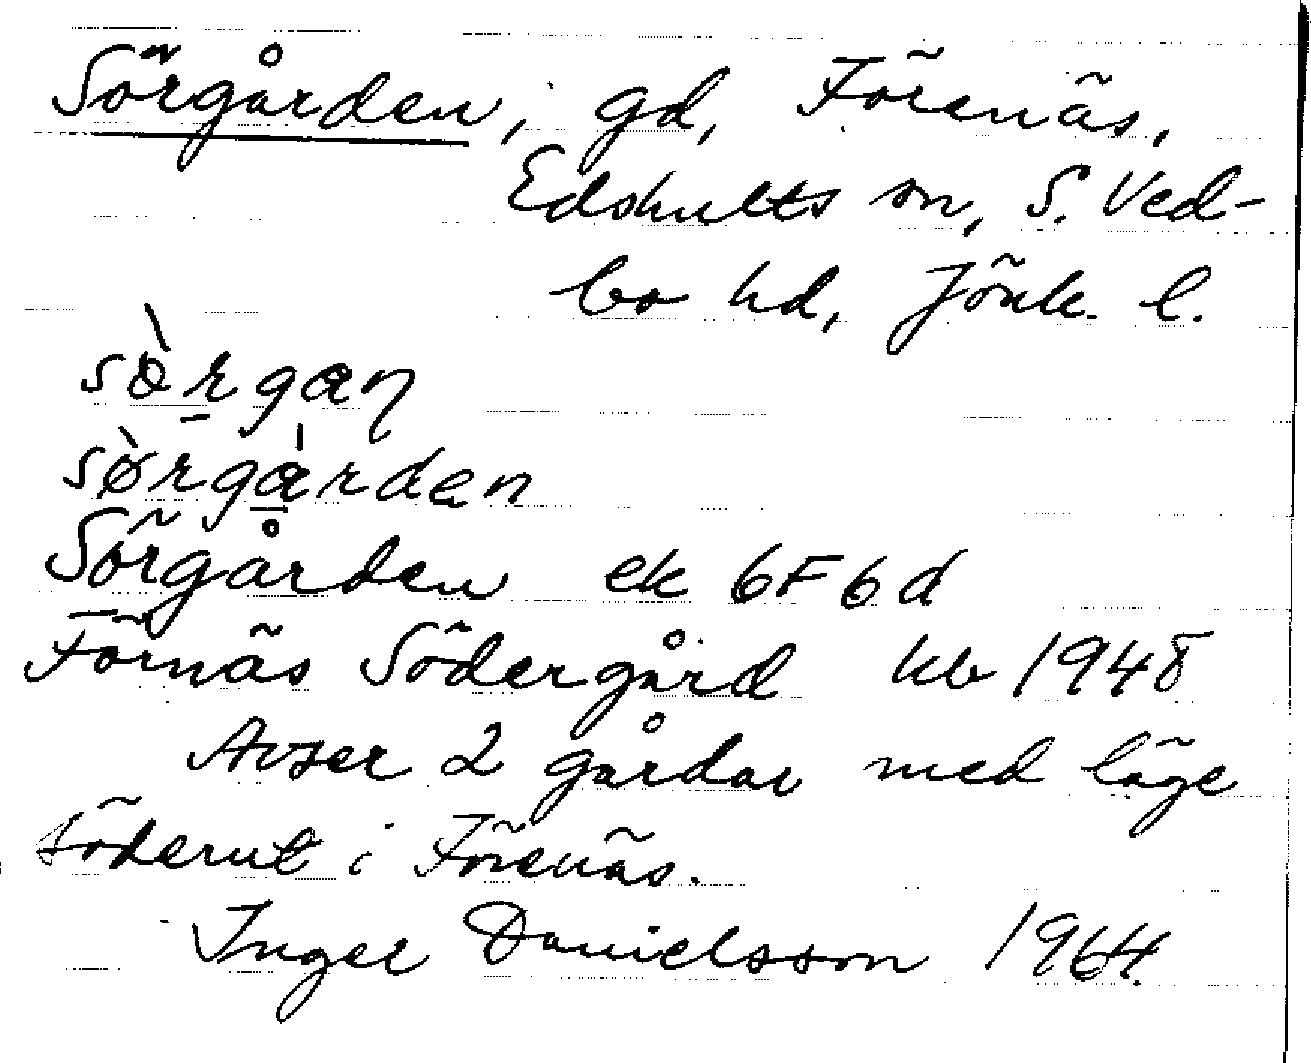 Sörgården, gd, Förenäs,
Edshults sn, S. Ved-
bo hd, Jönk. l.
sø̀rgaɳ
sø̀rgàrdən
Sörgården ek 6F6d
Förnäs Södergård kb 1948
Avser 2 gårdar med läge
söderut i Förenäs.
Inger Danielsson 1964.